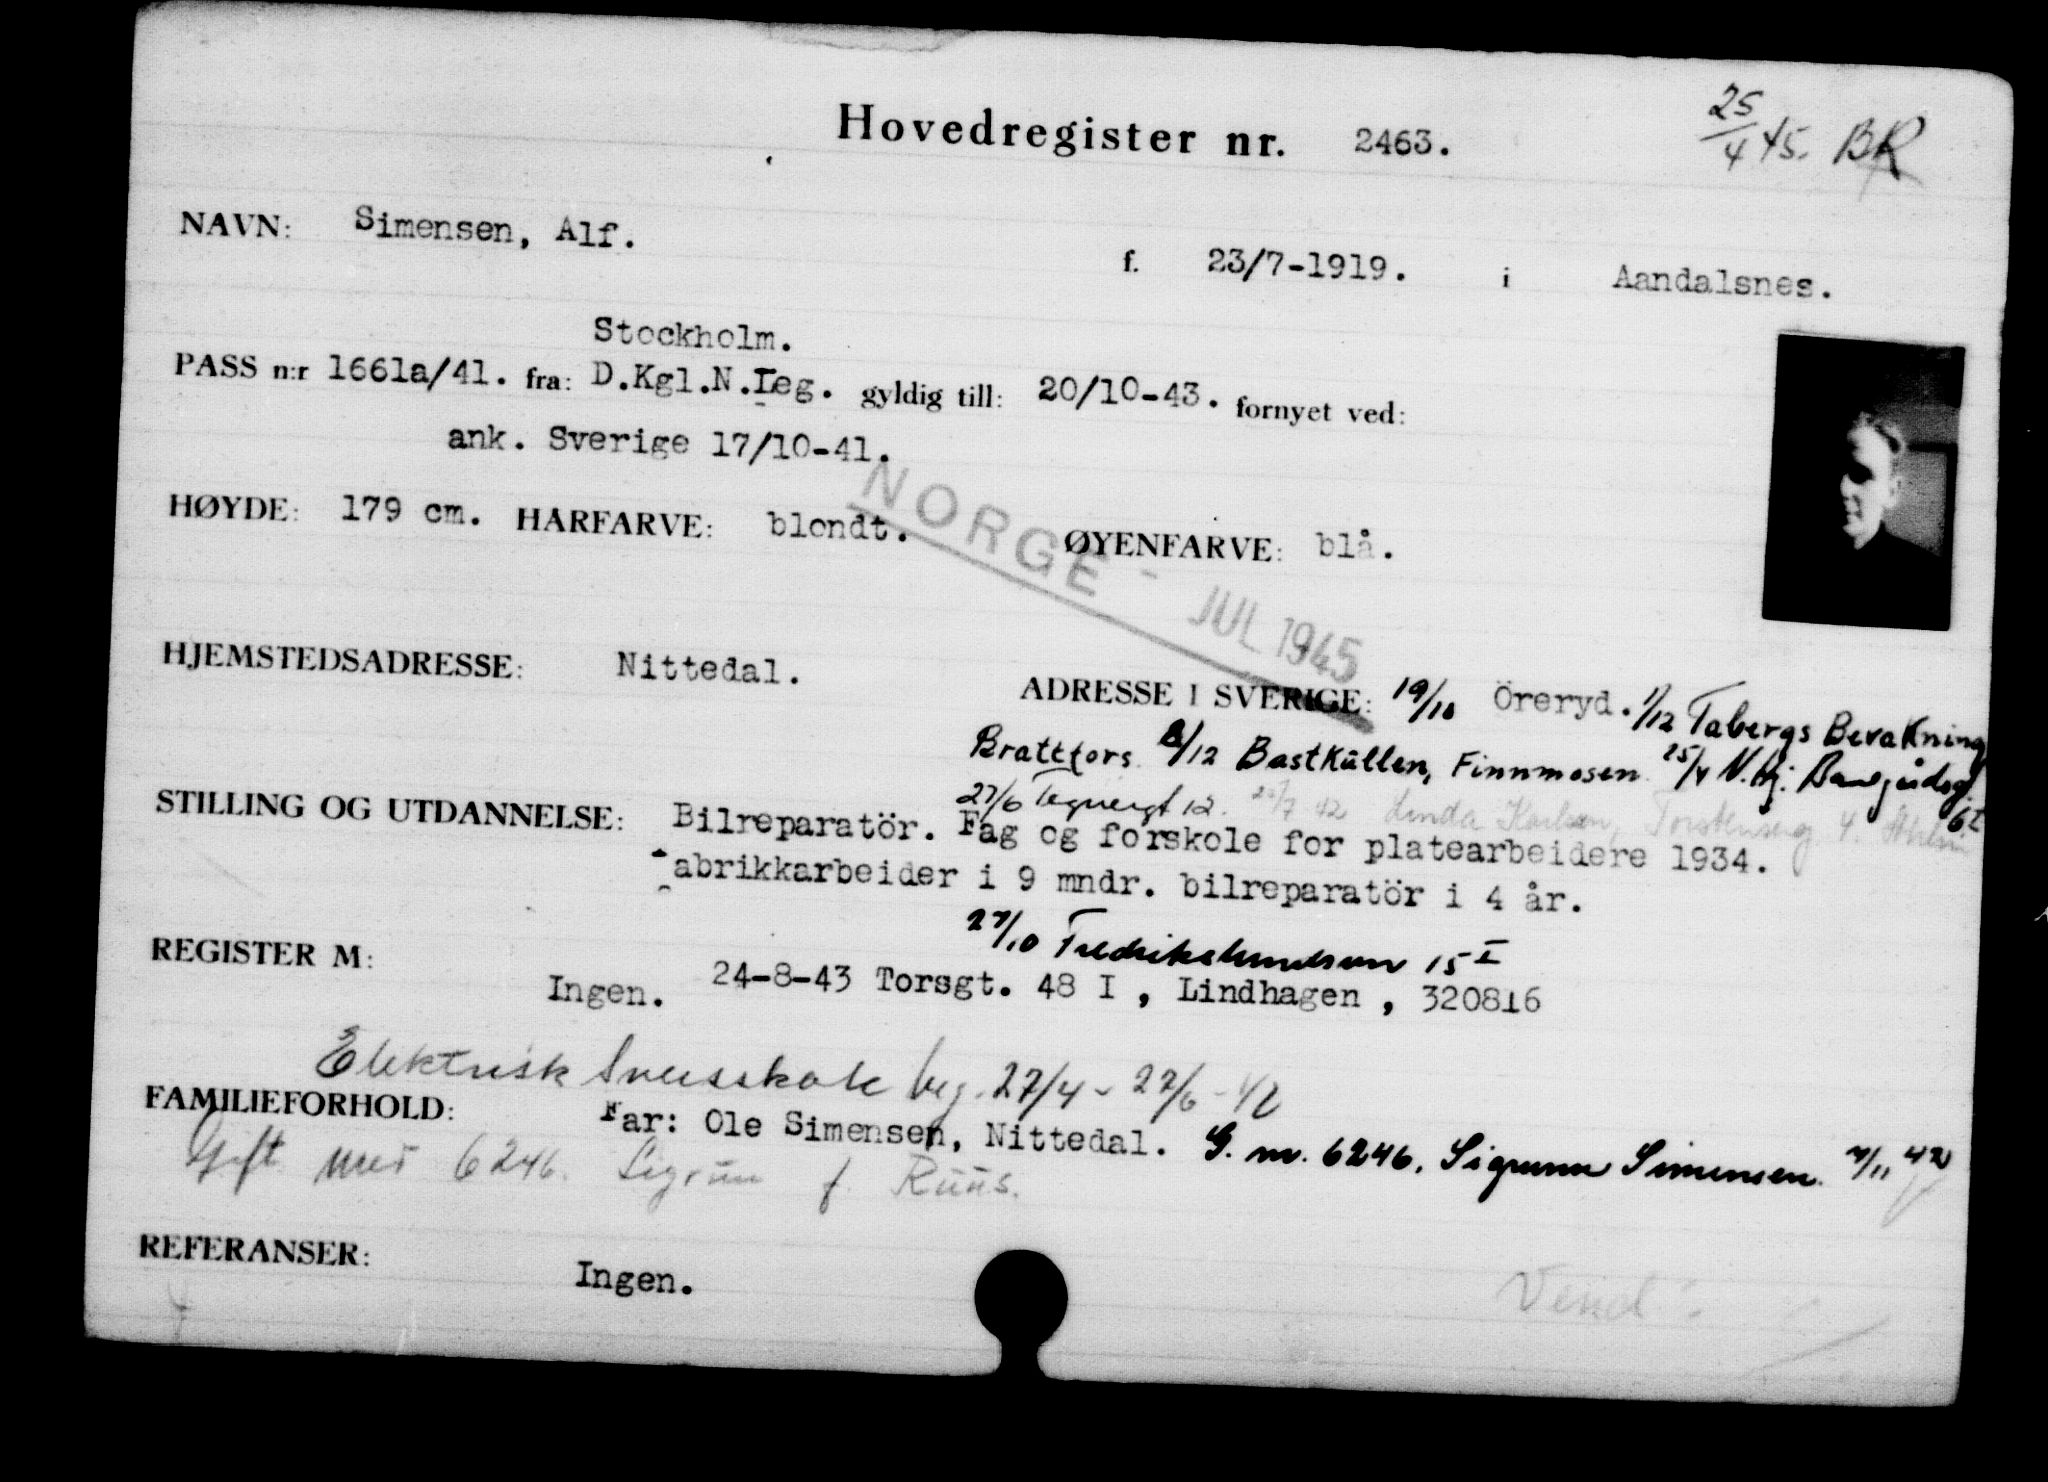 Hovedregister nr. 2463.
25/4 45. BR
NAVN: Simensen, Alf.
f. 23/7-1919. i Aandalsnes.
Stockholm.
PASS n:r 1661a/41. fra: D.Kgl.N.Leg. gyldig till: 20/10-43. fornyet ved:
ank. Sverige 17/10-41.
NORGE - JUL 1945
HØYDE: 179 cm. HÅRFARVE: blondt. ØYENFARVE: blå.
HJEMSTEDSADRESSE: Nittedal.
ADRESSE I SVERIGE: 19/10 Öreryd. 1/12 Tabergs Bevakning
Brattfors 8/12 Bastkullen, Finnmosen 25/4 N. Hj.
27/6 Tegnergt 12. Linda Karlsen, 4.
STILLING OG UTDANNELSE: Bilreparatör. Fag og forskole for platearbeidere 1934.
abrikkarbeider i 9 mndr. bilreparatör i 4 år.
27/10 15 I
REGISTER M: Ingen.
24-8-43 Torsgt. 48 I , Lindhagen , 320816
Elektrisk Sveisskole beg. 27/4 - 27/6 -42
FAMILIEFORHOLD: Far: Ole Simensen, Nittedal. G. m. 6246, Sigrunn Simensen 7/11 42
Gift med 6246. Sigrun f. Ruus.
REFERANSER: Ingen.
Vend